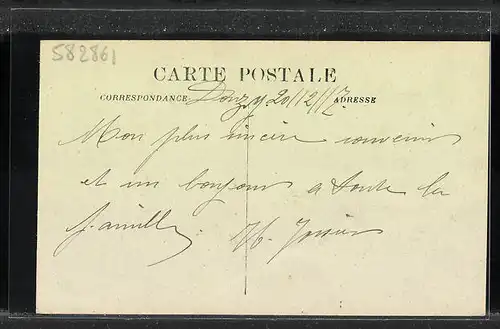 582861
CARTE POSTALE
CORRESPONDANCE Donzy 20/12/17 ADRESSE
Mon plus sincère souvenir
et un bonjour a toute la
famille
H.